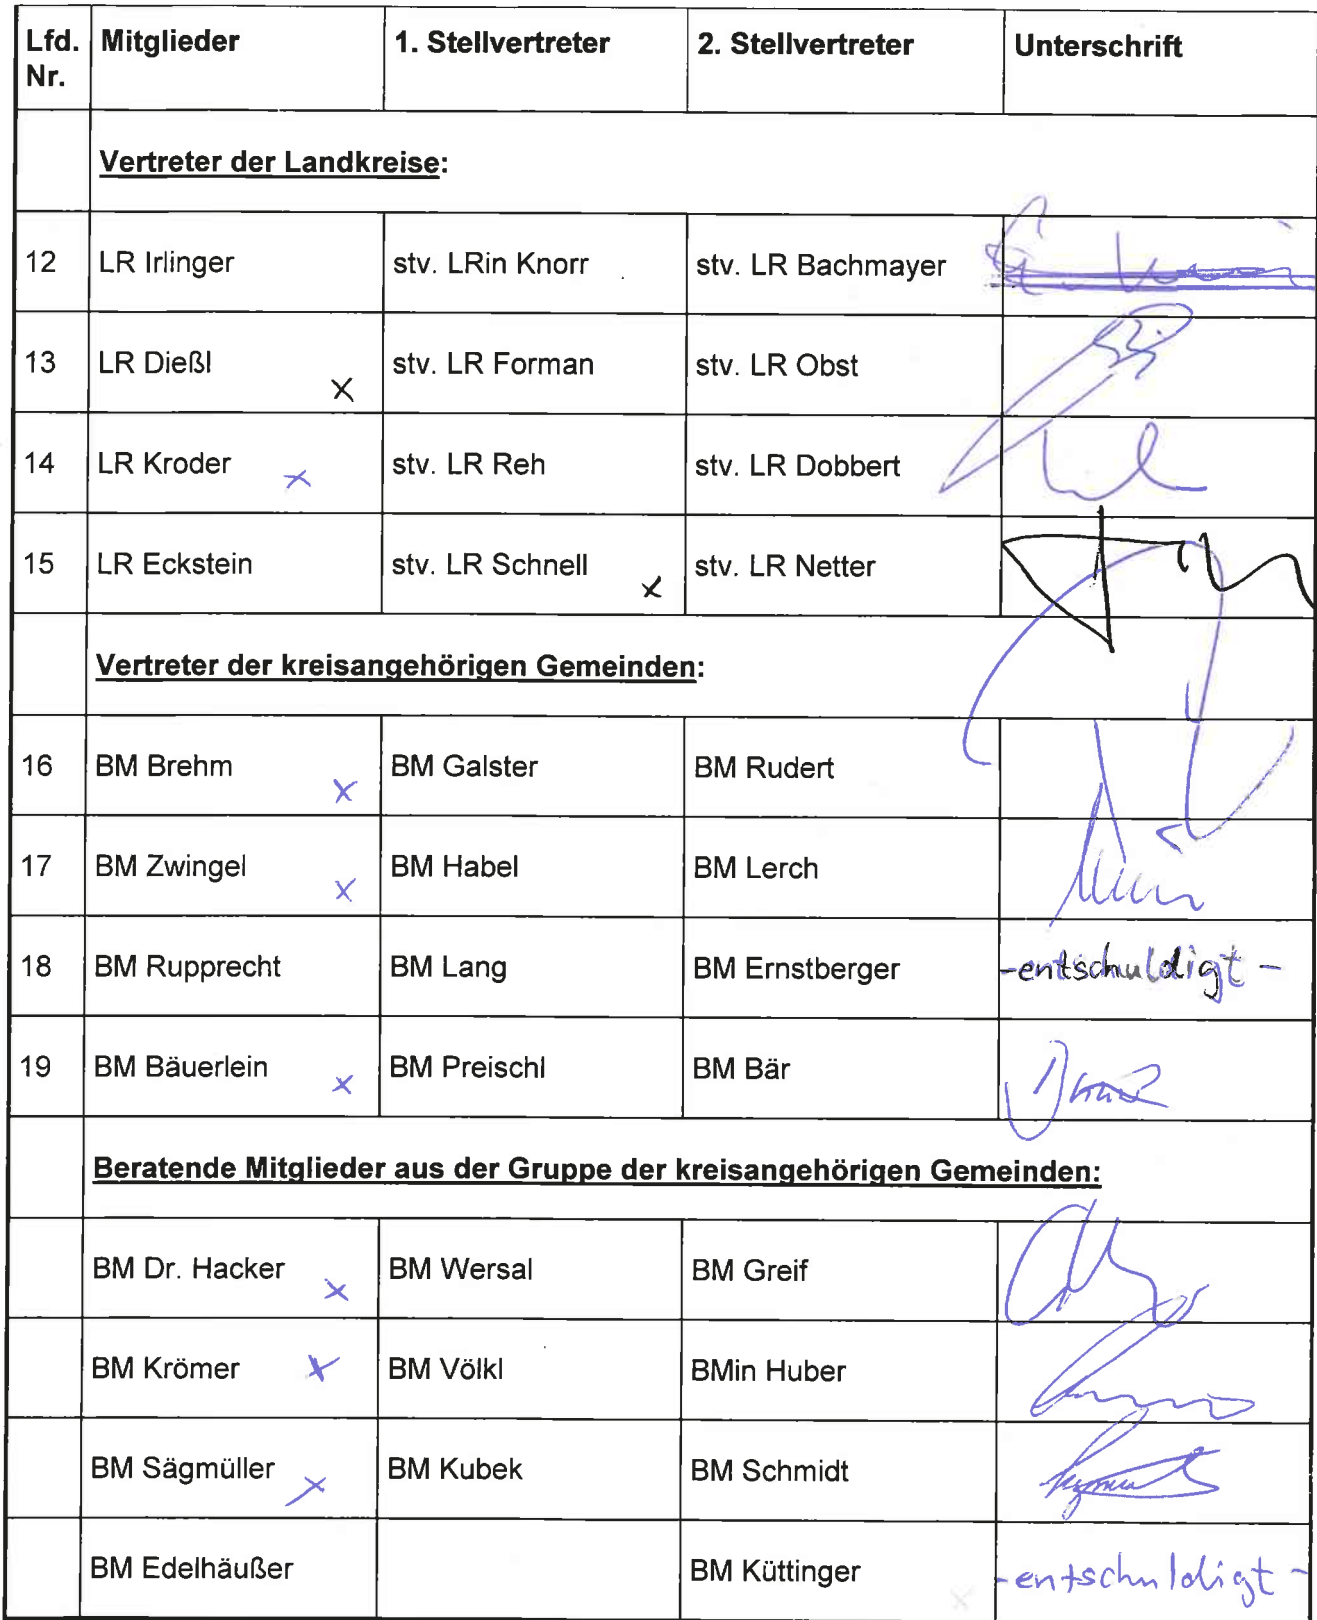 Lfd. Nr. Mitglieder 1. Stellvertreter 2. Stellvertreter Unterschrift
Vertreter der Landkreise:
12 LR Irlinger stv. LRin Knorr stv. LR Bachmayer
13 LR Dießl x stv. LR Forman stv. LR Obst
14 LR Kroder x stv. LR Reh stv. LR Dobbert
15 LR Eckstein stv. LR Schnell x stv. LR Netter
Vertreter der kreisangehörigen Gemeinden:
16 BM Brehm x BM Galster BM Rudert
17 BM Zwingel x BM Habel BM Lerch
18 BM Rupprecht BM Lang BM Ernstberger -entschuldigt-
19 BM Bäuerlein x BM Preischl BM Bär
Beratende Mitglieder aus der Gruppe der kreisangehörigen Gemeinden:
BM Dr. Hacker x BM Wersal BM Greif
BM Krömer x BM Völkl BMin Huber
BM Sägmüller x BM Kubek BM Schmidt
BM Edelhäußer BM Küttinger -entschuldigt-